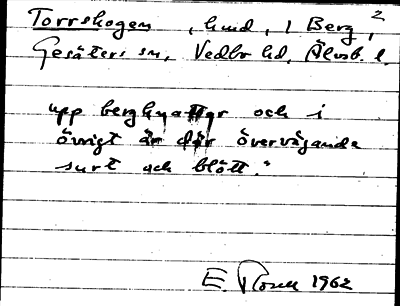 Torrskogen, hmd, i Berg, 2
Gesäters sn, Vedbo hd, Älvsb. l.
upp bergknattar och i
övrigt är där övervägande
surt och blött."
E. Rosell 1962